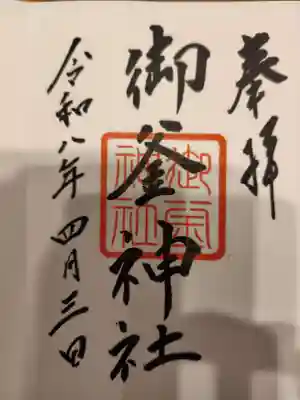 奉拝
御釜神社
令和八年四月三日
御釜神社